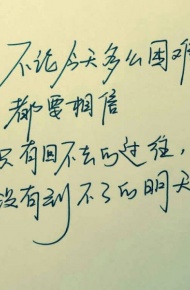 不论今天多么困难
都要相信
只有回不去的过往，
没有到不了的明天